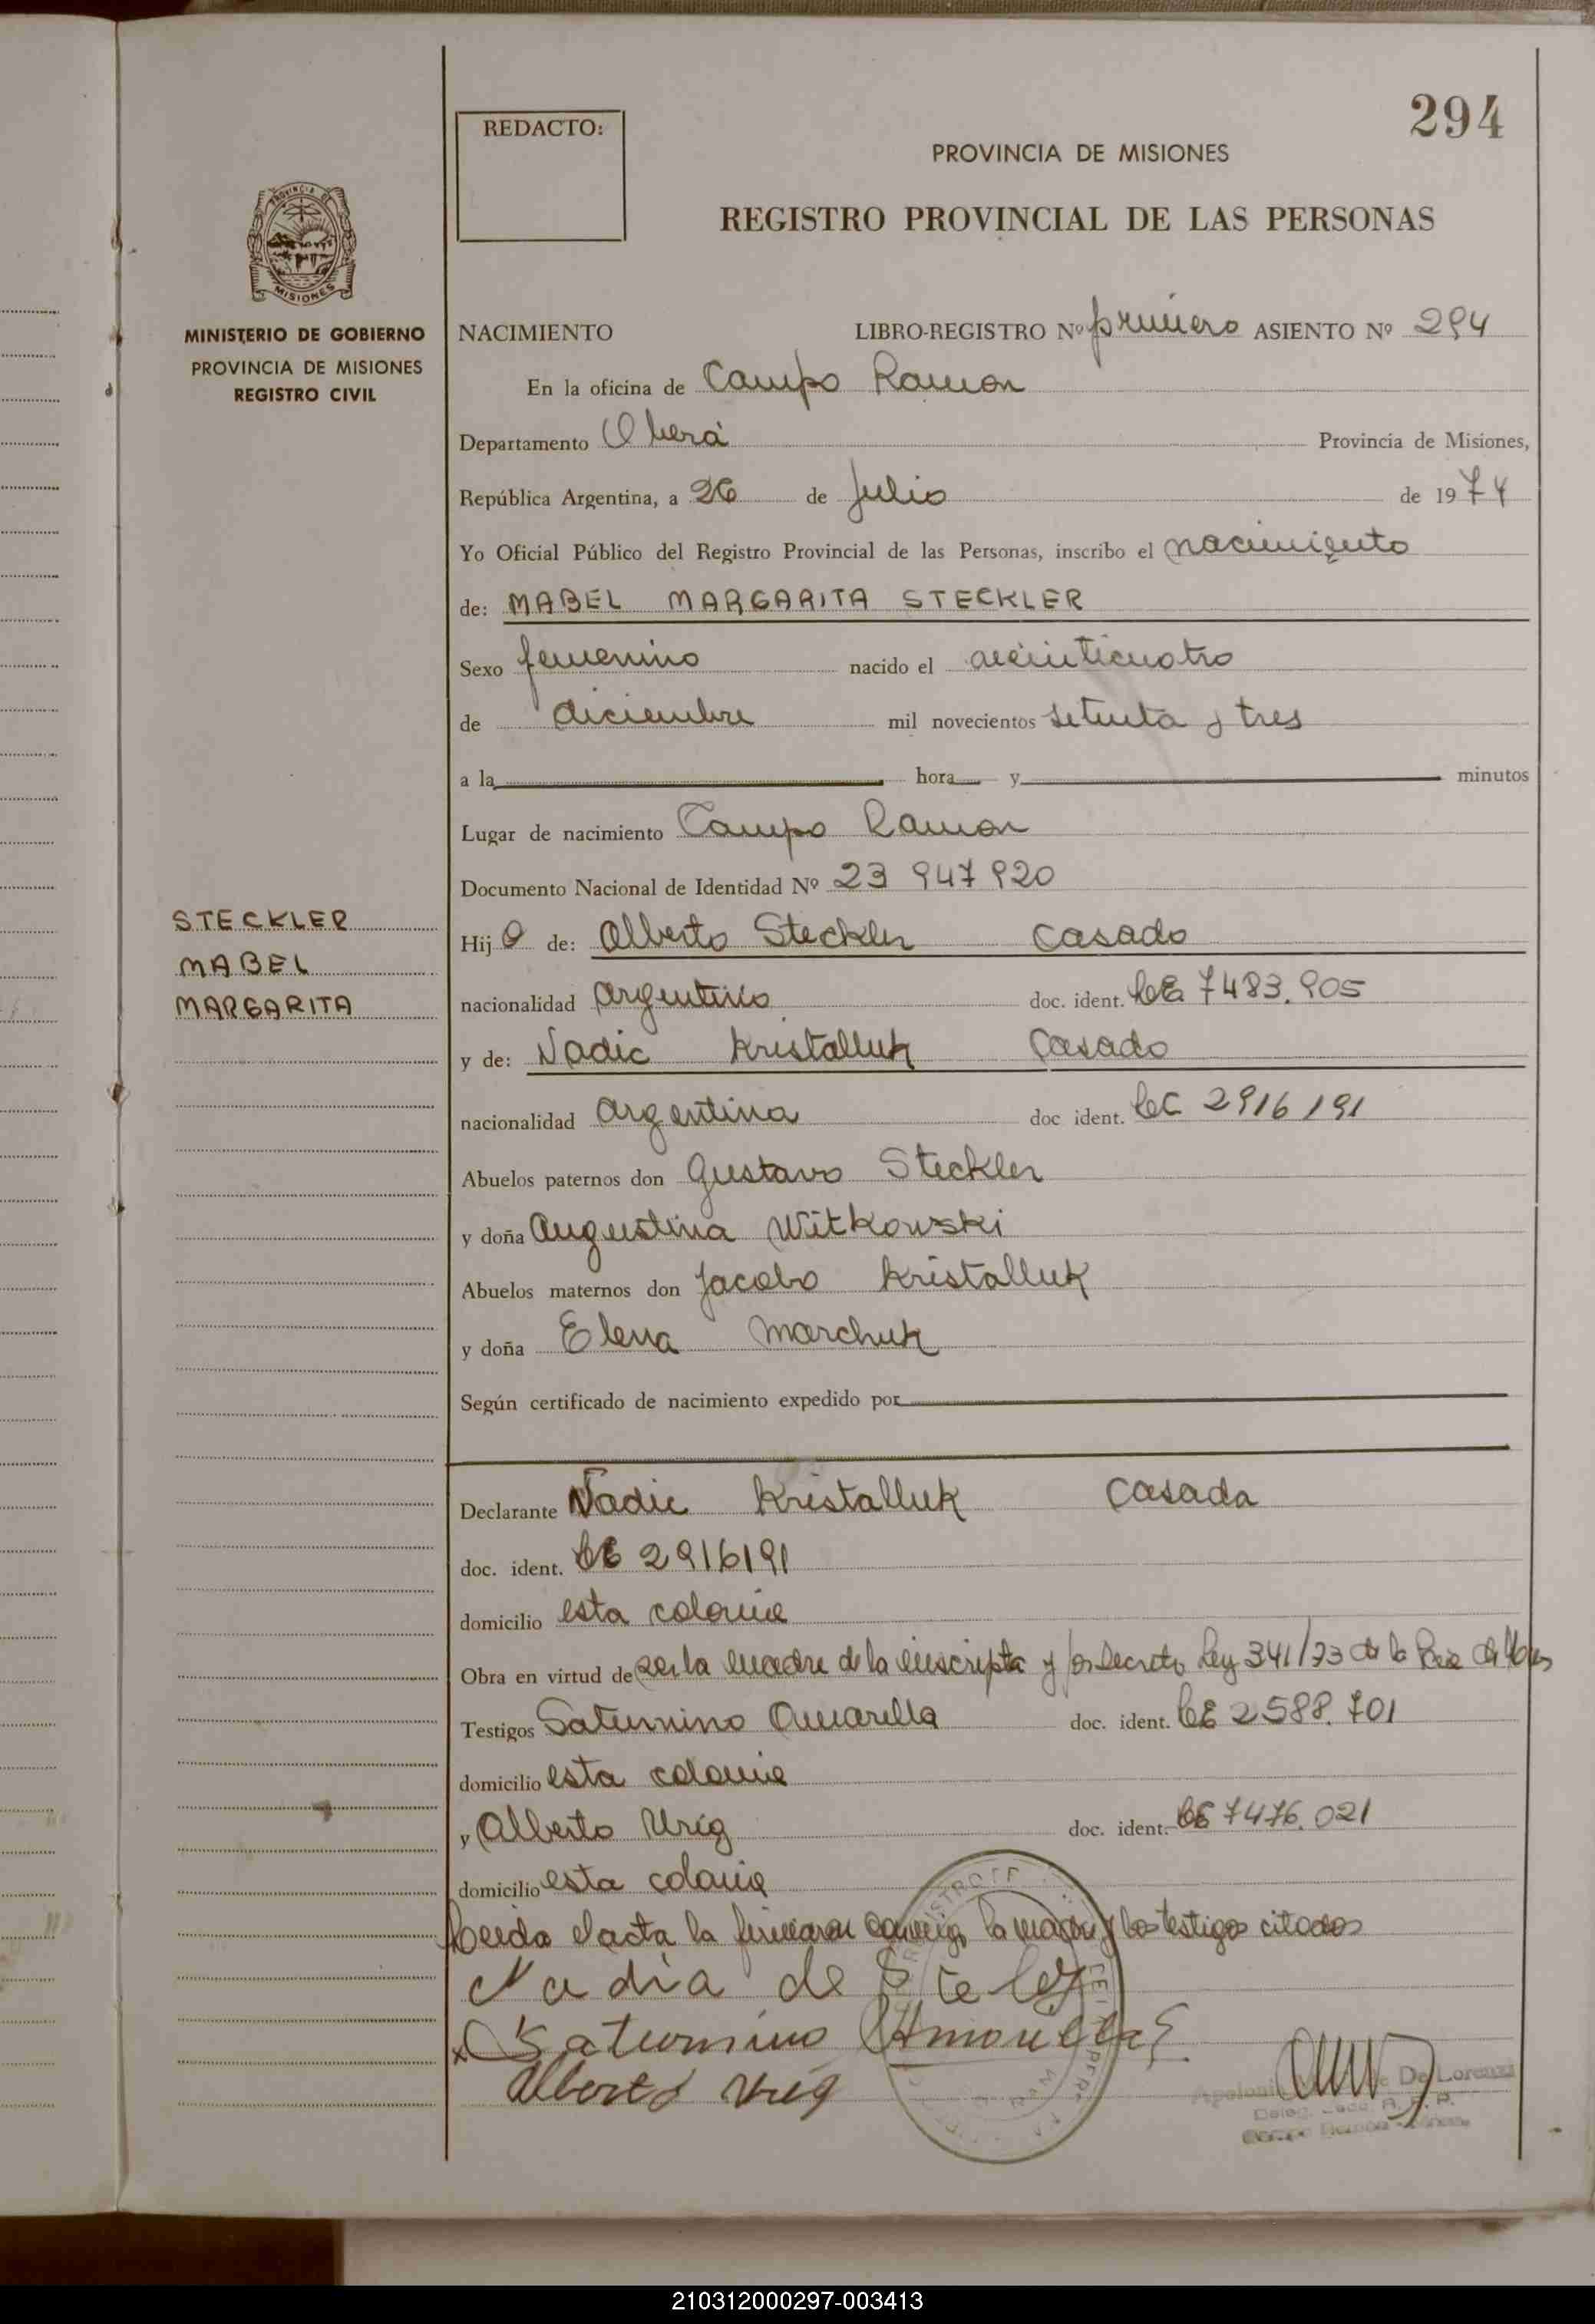 294
REDACTO:
PROVINCIA DE MISIONES
REGISTRO PROVINCIAL DE LAS PERSONAS
PROVINCIA DE
MISIONES
MINISTERIO DE GOBIERNO
PROVINCIA DE MISIONES
REGISTRO CIVIL
NACIMIENTO LIBRO-REGISTRO Nº primero ASIENTO Nº 294
En la oficina de Campo Ramon
Departamento Oberá Provincia de Misiones,
República Argentina, a 26 de Julio de 1974
Yo Oficial Público del Registro Provincial de las Personas, inscribo el nacimiento
de: MABEL MARGARITA STECKLER
Sexo femenino nacido el veinticuatro
de diciembre mil novecientos setenta y tres
a la hora y minutos
Lugar de nacimiento Campo Ramon
Documento Nacional de Identidad Nº 23 947 920
STECKLER
MABEL
MARGARITA
Hij a de: Alberto Steckler Casado
nacionalidad argentino doc. ident. LE 7483.905
y de: Nadic Kristalluk Casado
nacionalidad argentina doc ident. LC 2916191
Abuelos paternos don Gustavo Steckler
y doña Augustina Witkowski
Abuelos maternos don Jacobo Kristalluk
y doña Elena Marchuk
Según certificado de nacimiento expedido por
Declarante Nadic Kristalluk Casada
doc. ident. 2916191
domicilio esta colonia
Obra en virtud de ser la madre de la inscripta y por Decreto Ley 341/73 de la
Testigos Saturnino Amarilla doc. ident. LE 2588.701
domicilio esta colonia
y Alberto Urig doc. ident. LE 7476.021
domicilio esta colonia
Leida el acta la firmaron conmigo la madre y los testigos citados
Nadia de
Saturnino Amarilla
Alberto Urig
De Lorenzi
210312000297-003413